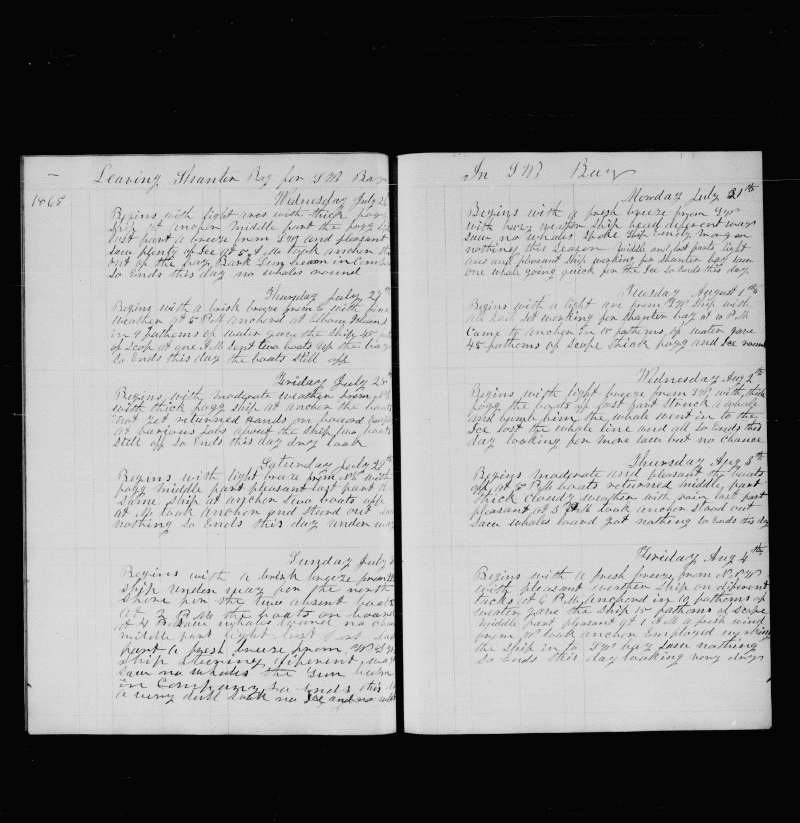 Leaving Shantor Bay for S W Bay
1865
Wednesday July 26
Begins with light ares with thick fogg
Ship at anchor middle part the fogg
last part a breeze from S W and pleasant
saw plenty of Ice at 5 A M took anchor
out of the bay Bark in Com
So Ends this day no whales round
Thursday July 27th
Begins with a brisk breeze from S with fine
weather at 5 P M anchored at Elbow Island
in 9 fathoms of water gave the ship 45 fath
of scop at one A M Sent two boats up the bay
So Ends this day the boats still off
Friday July 28th
Begins with moderate weather from
with thick fogg ship at anchor the boats
not yet returned Hands on board Employed
at various jobs about the ship two boats
still off so Ends this day dry look
Saturday July 29th
Begins with light breeze from with
fogg middle part pleasant last part the
same ship at anchor two boats off
at M took anchor and stood out saw
nothing so Ends this day under way
Sunday July 3
Begins with a brisk breeze from
Ship under way for the north
Shore for the two absent boats
at 2 P M the boats on board
at 4 P M saw whales lowred no chance
middle part light last
part a fresh breeze from W S W
Ship stering diferent ways
saw no whales the
in Company so ends this day
a very dull look no Ice and no whales
In S W Bay
Monday July 31th
Begins with a fresh breeze from S W
with hazy weather ship head diferent ways
saw no whales spoke ship
nothing this season middle and last parts light
ares and pleasant ship working for shantor bay saw
one whale going quick for the Ice so Ends this day
Tuesday August 1th
Begins with a light are from S W Ship with
all sail set working for shantor bay at 10 P M
Came to anchor in 15 fathoms of water gave
45 fathoms of scope thick fogg and Ice round
Wednesday Aug 2th
Begins with light breeze from S W with thick
fogg the boats off last part struck a whale
and bomb him the whale went in to the
Ice lost the whale line and all so Ends this
day looking for more saw but no chance
Thursday Aug 3th
Begins moderate and pleasant the boats
off at 5 P M boats returned middle part
thick cloudy weather with rain last part
pleasant at 3 P M took anchor stood out
saw whales lowred got nothing so Ends this day
Friday Aug 4th
Begins with a fresh breeze from N N W
with pleasant weather ship on diferent
tacks at 6 P M anchored in 9 fathoms of
water gave the ship 15 fathoms of scope
middle part pleasant at 1 A M a fresh wind
from W took anchor Employed working
the ship in to S W bay saw nothing
so Ends this day looking very dry